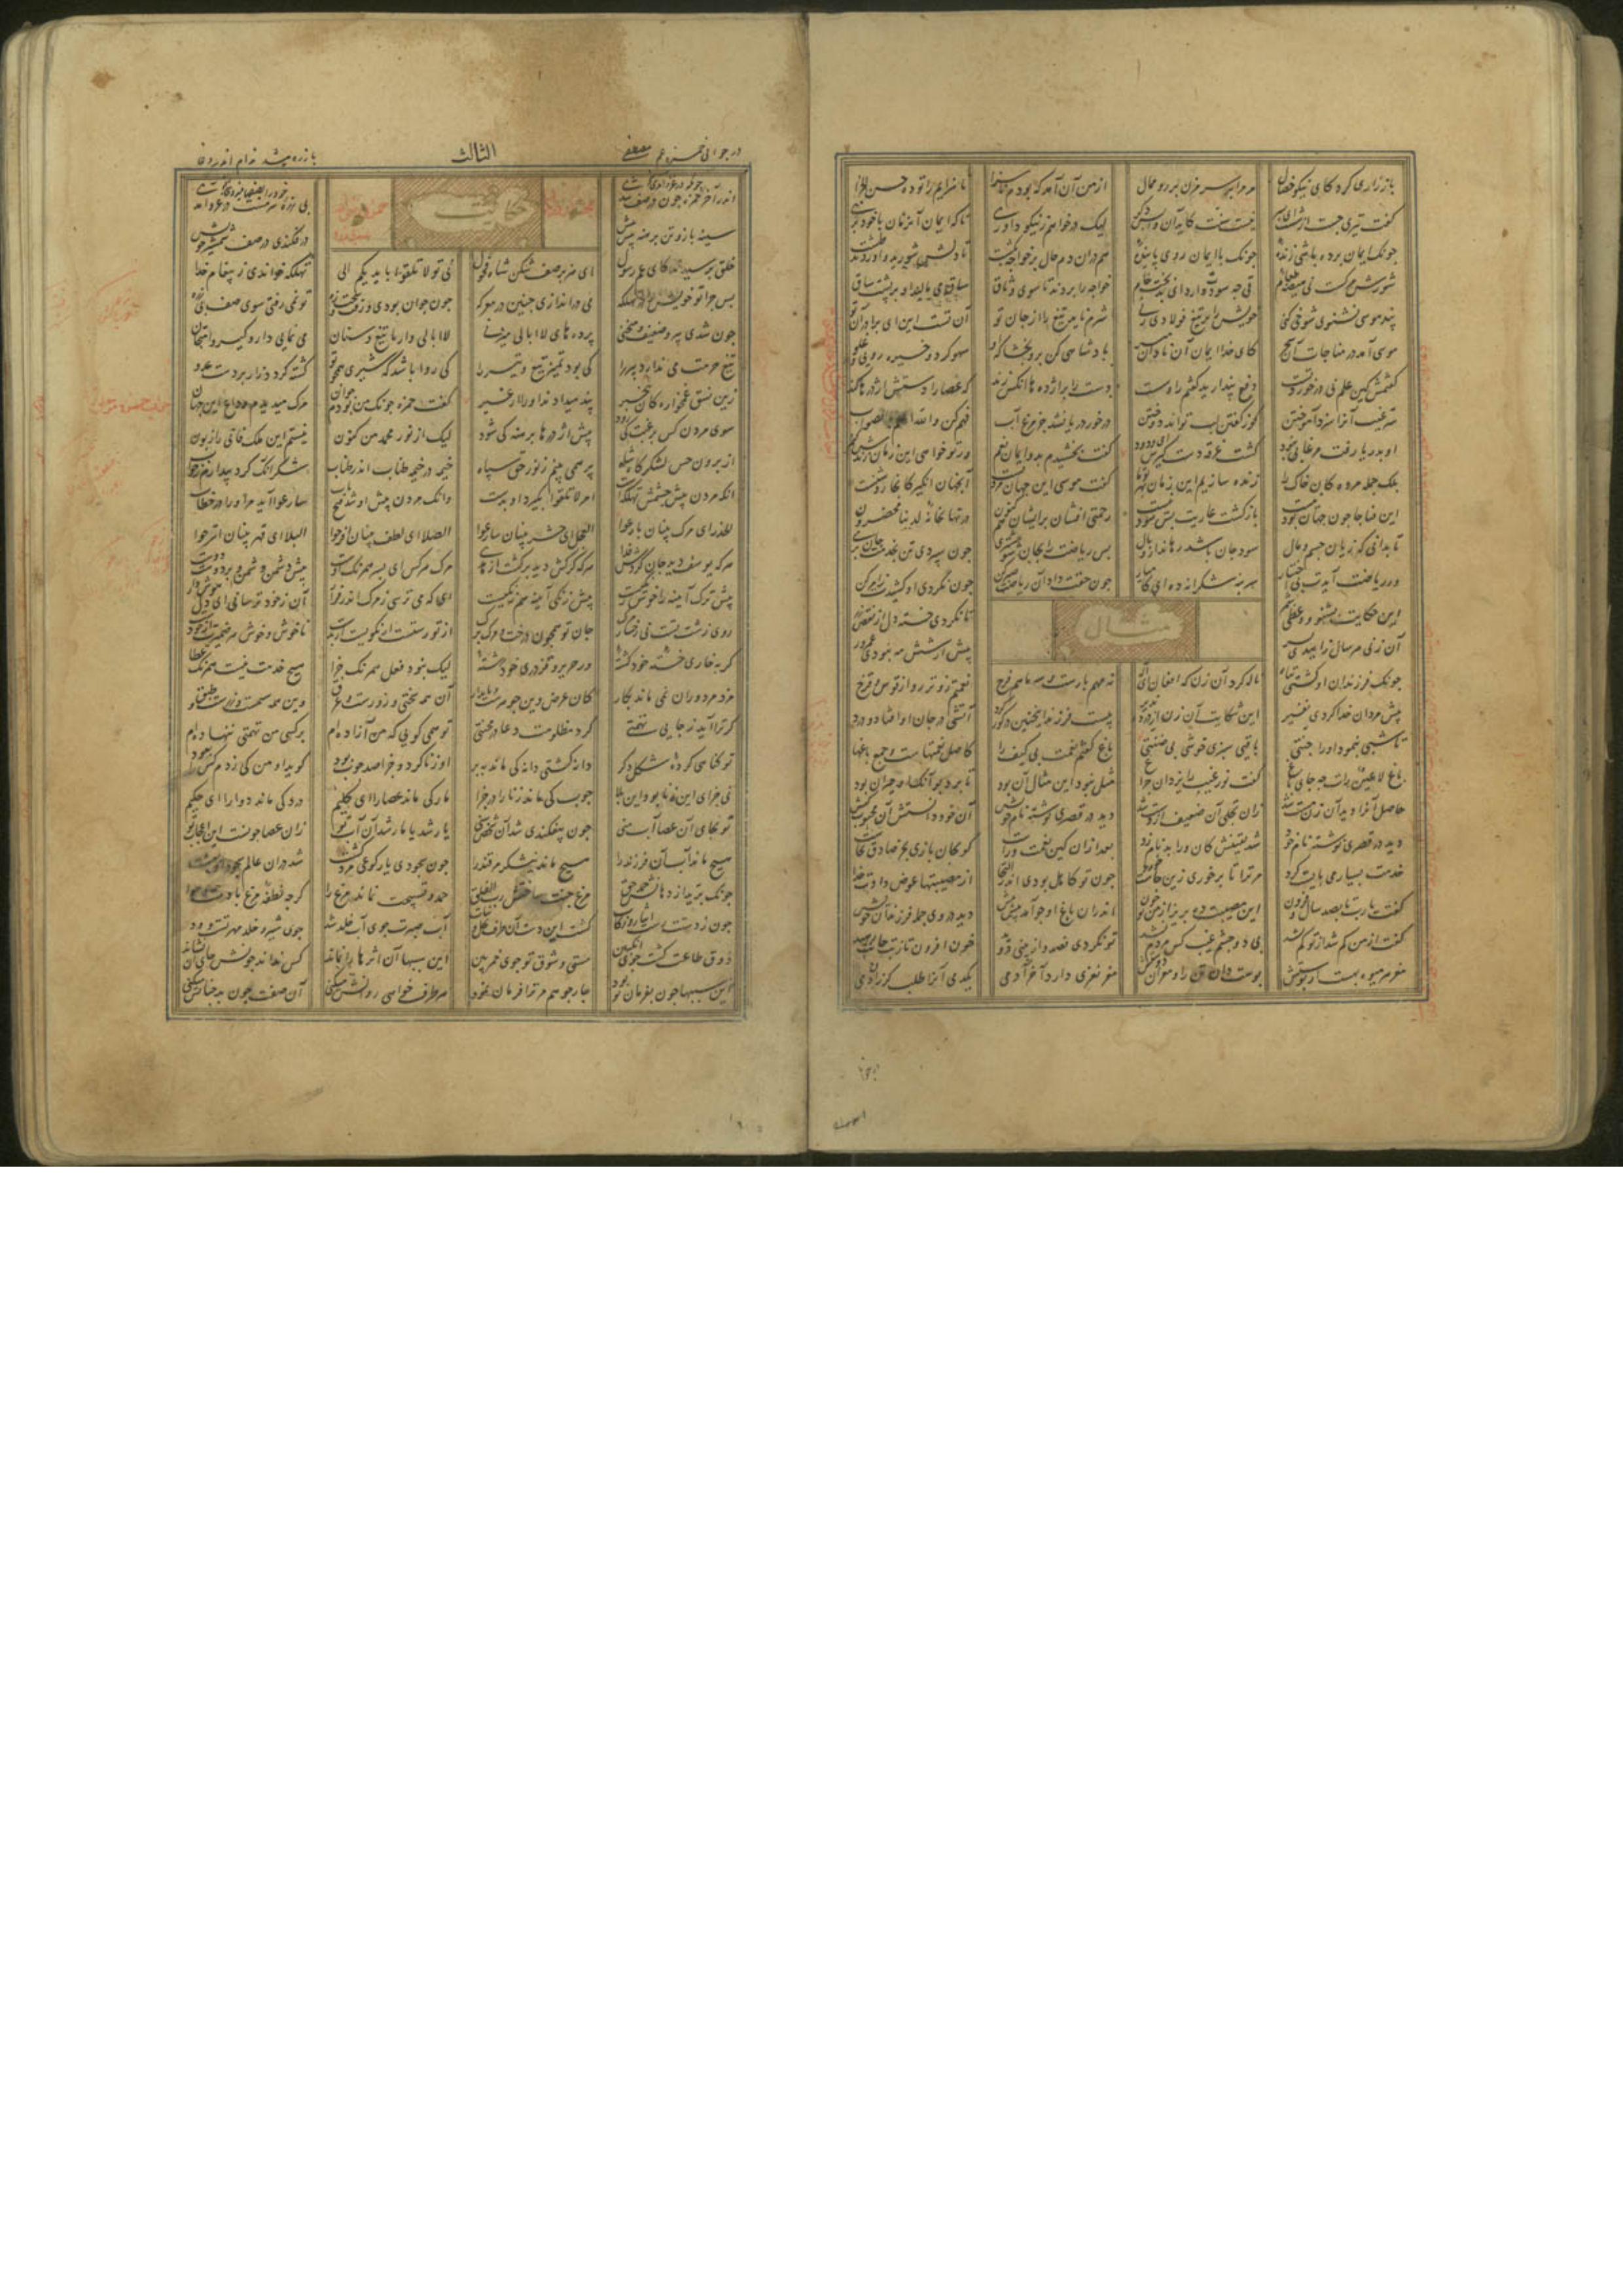 باز زاری کرد کای نیکو خصال مر مرا بر سر مزن بر رو ممال از من آن آمد که بودم ناسزا ناسزایم را تو ده حسن الجزا
کفت تیری جست از شست ای پسر نیست سنت کاید آن واپس بسر لیک درخواهم ز نیکو داوری تا که ایمان آن زمان با خود بری
چونک ایمان برده باشی زنده چونک با ایمان روی پاینده هم در آن دم حال بر خواجه بکشت تا دلش شورید و آوردند طشت
شورش مرکست نی هیضه طعام قی چه سودت دارد ای بدبخت خام خواجه را بردند تا سوی وثاق ساق می مالید او بر پشت ساق
پند موسی نشنوی شوخی کنی خویش را بر تیغ فولادی زنی شرم ناید تیغ را از جان تو آن تست این ای برادر آن تو
موسی آمد در مناجات آن سحر کای خدا ایمان آن نادان مبر پادشاهی کن برو بخشا که او سهو کرد و خیره رویی و غلو
کفتمش کین علم نی درخورد تست دفع پندارید کفتم را و سست دست را بر اژدها آنکس زند که عصا را دستش اژدرها کند
سر غیب آنرا سزد آموختن کو ز کفتن لب تواند دوختن درخور دریا نشد جز مرغ آب فهم کن والله اعلم بالصواب
او بدریا رفت و مرغابی نبود کشت غرقه دست کیرش ای ودود کفت بخشیدم بدو ایمان نعم ور تو خواهی این زمان زنده ش کنم
بلک جمله مردکان خاک را زنده سازیم این زمان بهر ترا کفت موسی این جهان مردنست آن جهان انکیز کانجا روشنست
این فنا جا چون جهان بود نیست بازکشت عاریت بس سود نیست رحمتی افشان برایشان هم کنون در نهانخانه لدینا محضرون
تا بدانی که زیان جسم و مال سود جان باشد رهاند از وبال پس ریاضت را بجان شو مشتری چون سپردی تن بخدمت جان بری
ور ریاضت آیدت بی اختیار سر بنه شکرانه ده ای کامیار چون حقت داد آن ریاضت شکر کن چون نکردی او کشیدت ز امر کن
این حکایت بشنو و
مثال
آن زنی هر سال زاییدی پسر بیش از شش مه نبودی عمرور
چونک فرزندان او کشتی تباه ناله کرد آن زن که افغان ای اله نه مهم بارست و سه ماهم فرح نعمتم زوتر رو از قوس قزح
پیش مردان خدا کردی نفیر این شکایت آن زن از درد نذیر بیست فرزند اینچنین در کور کرد آتشی در جان او افتاد و درد
تا شبی بنمود او را جنتی باقیی سبزی خوشی بی ضنتی باغ کفتم نعمت بی کیف را کاصل نعمتهاست و جمع باغها
باغ لا عین رات چه جای باغ کفت نور غیب را یزدان چراغ مثل نبود این مثال آن بود تا برد بو آنک او حیران بود
حاصل آنرا دید آن زن مست شد زان تجلی آن ضعیف از دست شد دید در قصری نوشته نام خویش آن خود دانستش آن محبوب کیش
دید در قصری نوشته نام خود شد یقینش کان بعد ازان کین نعمت وراست کو بجان بازی بجز صادق نخاست
خدمت بسیار می بایست کرد مر ترا تا برخوری زین چاشت خورد چون تو کاهل بودی اندر التجا از مصیبتها عوض دادت خدا
کفت یا رب تا بصد سال و فزون این مصیبت ده بریز از من تو خون اندر آن باغ او چو آمد پیش پیش دید در وی جمله فرزندان خویش
کفت از من کم شد از تو کم نشد بی دو چشم غیب کس مردم نشد تو نکردی فصد و از بینی دوید خون افزون تا ز تب جانت رهید
مغز هر میوه بهست از پوستش پوست دان تن را و مغز آن دوستش مغز نغزی دارد آخر آدمی یکدمی آنرا طلب کر زان دمی
در جوانی حمزه عم مصطفی الثالث با زره می شد مدام اندر وغا
حکایت
اندر آخر حمزه چون در صف شدی بی زره سرمست در غزو آمدی
سینه باز و تن برهنه پیش پیش در فکندی در صف شمشیر خویش
خلق پرسیدند کای عم رسول ای هزبر صف شکن شاه فحول نی تو لا تلقوا بایدیکم الی تهلکه خواندی ز پیغام خدا
پس چرا تو خویش را در تهلکه می دراندازی چنین در معرکه چون جوان بودی و زفت و سخت زه تو نمی رفتی سوی صف بی زره
چون شدی پیر و ضعیف و منحنی پرده های لاابالی میزنی لاابالی وار با تیغ و سنان می نمایی دار و کیر و امتحان
تیغ حرمت می ندارد پیر را کی بود تمییز تیغ و تیر را کی روا باشد که شیری همچو تو کشته کردد زار بر دست عدو
زین نسق غمخوارکان بی خبر پند میدادند او را از غیر کفت حمزه چونک من بودم جوان مرک میدیدم وداع این جهان
سوی مردن کس برغبت کی رود پیش اژدرها برهنه کی شود لیک از نور محمد من کنون نیستم این ملک فانی را زبون
از برون حس لشکرکاه شاه پر همی بینم ز نور حق سپاه خیمه در خیمه طناب اندر طناب شکر آنک کرد بیدارم ز خواب
آنک مردن پیش چشمش تهلکست امر لا تلقوا بکیرد او بدست وانک مردن پیش او شد فتح باب سارعوا آید مر او را در خطاب
الحذر ای مرک بینان بارعوا العجل ای حشر بینان سارعوا الصلا ای لطف بینان افرحوا البلا ای قهر بینان اترحوا
هرکه یوسف دید جان کردش فدا هرکه کرکش دید برکشت از هدی مرک هر کس ای پسر همرنک اوست پیش دشمن دشمن و بر دوست دوست
پیش ترک آیینه را خوش رنکیست پیش زنکی آینه هم زنکیست ای که می ترسی ز مرک اندر فرار آن ز خود ترسانی ای جان هوش دار
روی زشت تست نی رخسار مرک جان تو همچون درخت و مرک برک از تو رستست ار نکویست ار بدست ناخوش و خوش هر ضمیرت از خودست
کر بخاری خسته خود کشته ور حریر و قز دری خود رشته لیک نبود فعل همرنک جزا هیچ خدمت نیست همرنک عطا
مزد مزدوران نمی ماند بکار کان عرض وین جوهرست و پایدار آن همه سختی و زورست و عرق وین همه سیمست و زرست و طبق
کر ترا آید ز جایی تهمتی کرد مظلومت دعا در محنتی تو همی کویی که من آزاده ام بر کسی من تهمتی ننهاده ام
تو کناهی کرده شکل دکر دانه کشتی دانه کی ماند ببر او زنا کرد و جزا صد چوب بود کوید او من کی زدم کس را بعود
نی جزای این زنا بود این بلا چوب کی ماند زنا را در جزا مار کی ماند عصا را ای کلیم درد کی ماند دوا را ای حکیم
تو بجای آن عصا آب منی چون بیفکندی شد آن شخص سنی یار شد یا مار شد آن آب تو زان عصا چونست این اعجاب تو
هیچ ماند آب آن فرزند را هیچ ماند نیشکر مر قند را چون سجودی یا رکوعی مرد کشت شد در آن عالم سجود او بهشت
چونک پرید از دهانش حمد حق مرغ جنت ساختش رب الفلق حمد و تسبیحت نماند مرغ را کرچه نطفه مرغ بادست و هوا
چون ز دستت رست ایثار و زکات کشت این دست آن طرف نخل و نبات آب صبرت جوی آب خلد شد جوی شیر خلد مهر تست و ود
ذوق طاعت کشت جوی انکبین مستی و شوق تو جوی خمر بین این سببها آن اثرها را نماند کس نداند چونش جای آن نشاند
این سببها چون بفرمان تو بود چار جو هم مر ترا فرمان نمود هر طرف خواهی روانش میکنی آن صفت چون بد چنانش میکنی